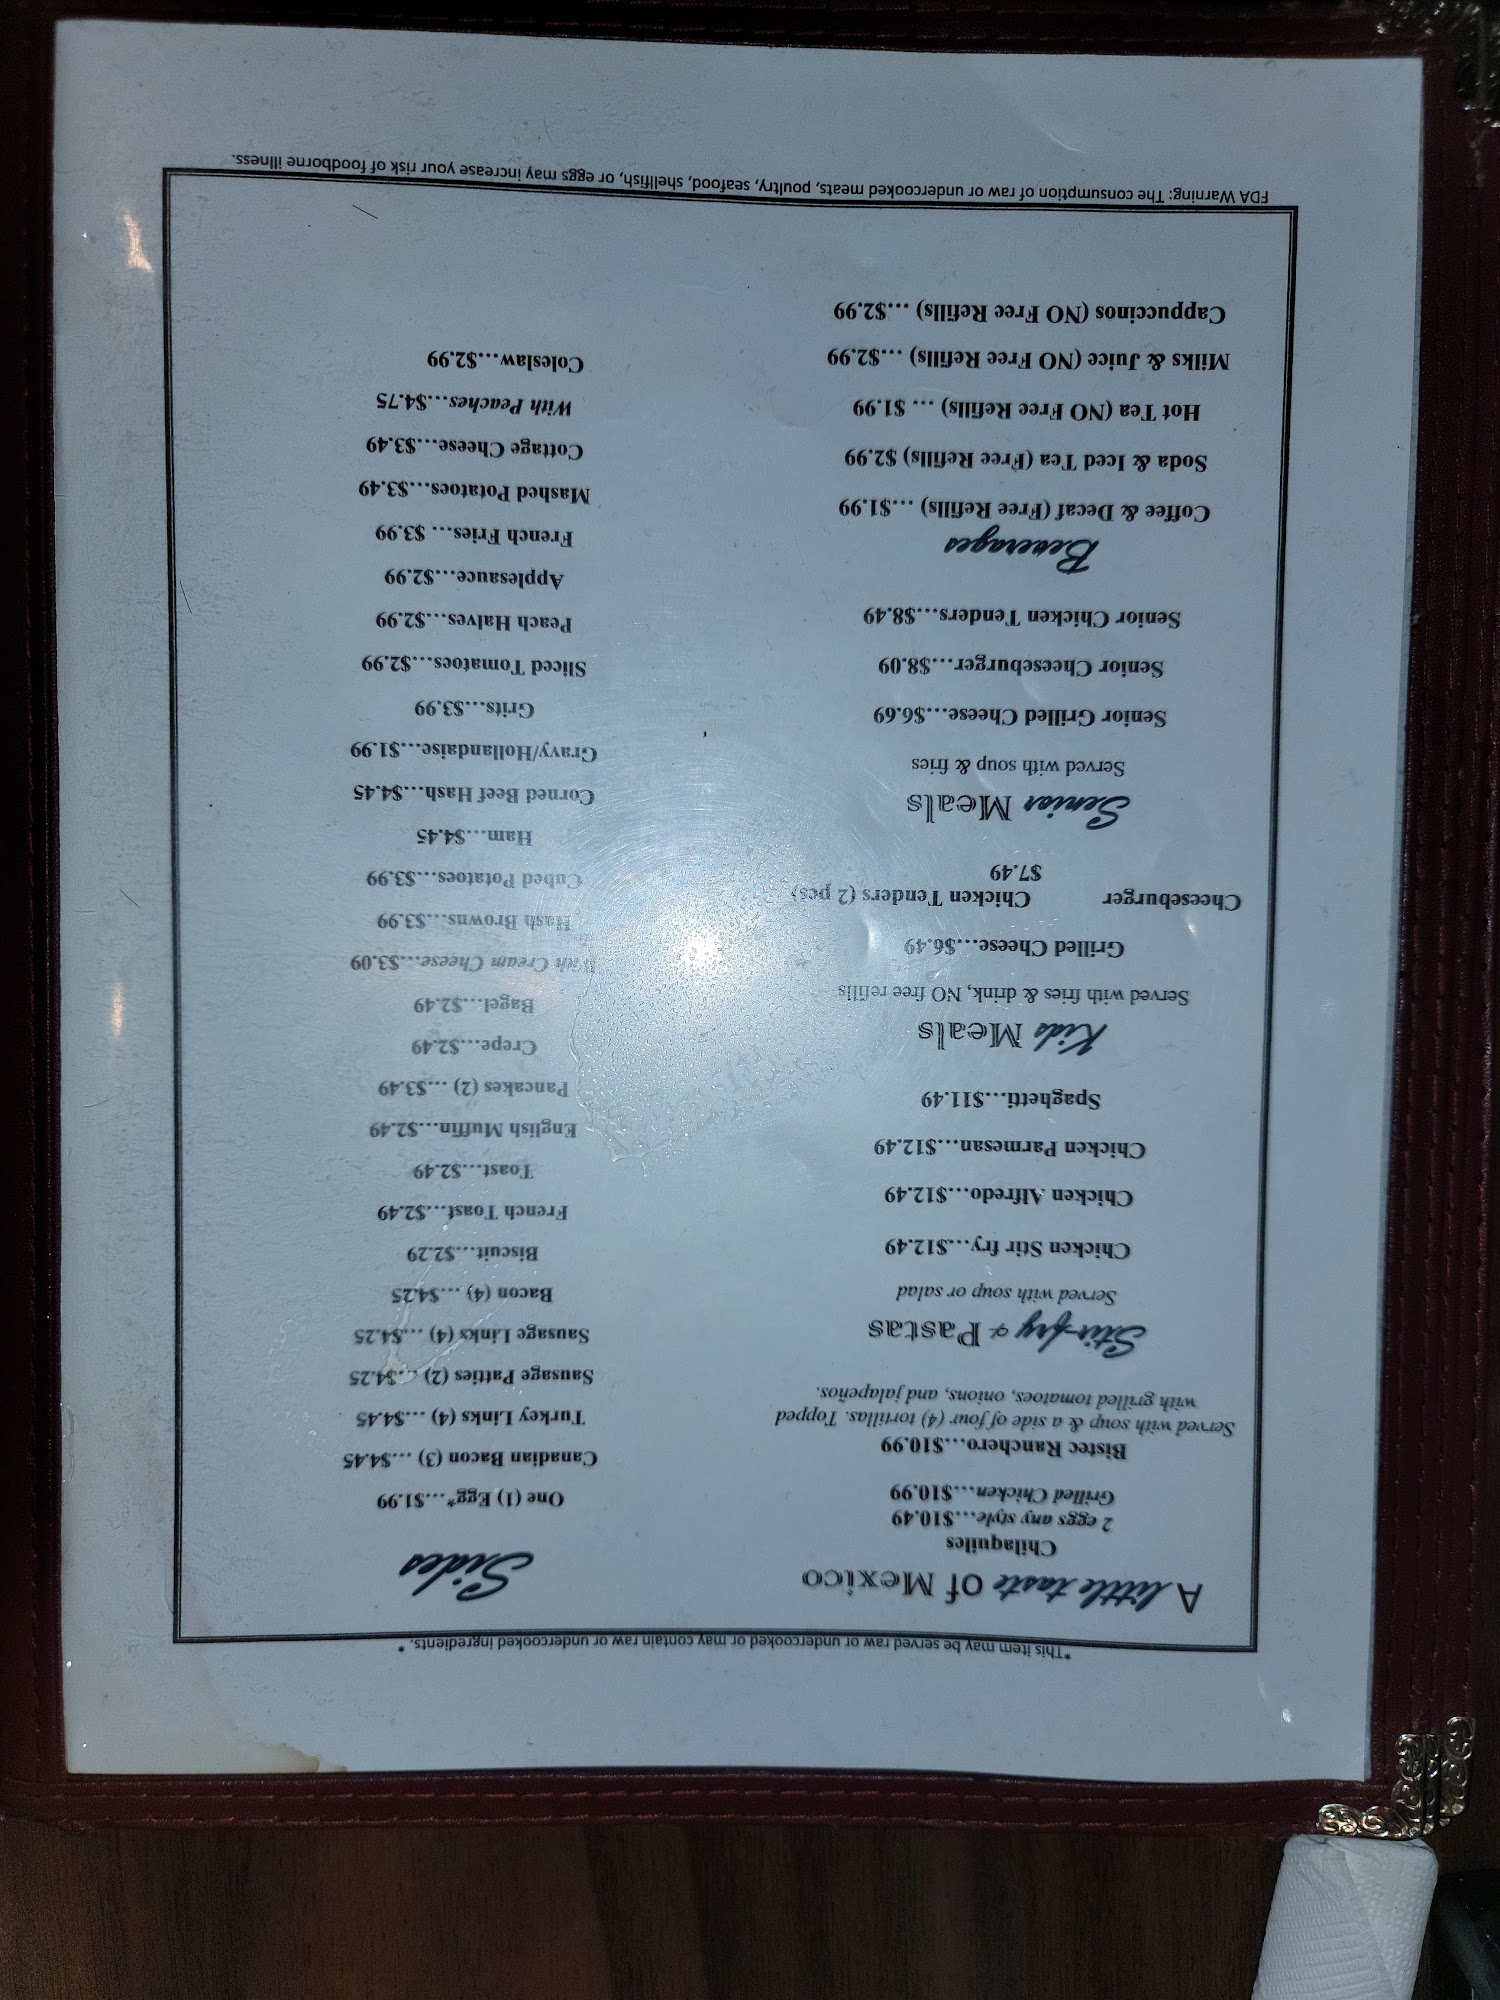 *This item may be served raw or undercooked or may contain raw or undercooked ingredients. *
A little taste Of Mexico
Chilaquiles
2 eggs any style…$10.49
Grilled Chicken…$10.99
Bistec Ranchero…$10.99
Served with soup & a side of four (4) tortillas. Topped
with grilled tomatoes, onions, and jalapeños.
Stir-fry & Pastas
Served with soup or salad
Chicken Stir fry…$12.49
Chicken Alfredo…$12.49
Chicken Parmesan…$12.49
Spaghetti…$11.49
Kids Meals
Served with fries & drink, NO free refills
Grilled Cheese…$6.49
Cheeseburger Chicken Tenders (2 pcs)
$7.49
Senior Meals
Served with soup & fries
Senior Grilled Cheese…$6.69
Senior Cheeseburger…$8.09
Senior Chicken Tenders…$8.49
Beverages
Coffee & Decaf (Free Refills) …$1.99
Soda & Iced Tea (Free Refills) $2.99
Hot Tea (NO Free Refills) … $1.99
Milks & Juice (NO Free Refills) …$2.99
Cappuccinos (NO Free Refills) …$2.99
Sides
One (1) Egg*…$1.99
Canadian Bacon (3) …$4.45
Turkey Links (4) …$4.45
Sausage Patties (2) …$4.25
Sausage Links (4) …$4.25
Bacon (4) …$4.25
Biscuit…$2.29
French Toast…$2.49
Toast…$2.49
English Muffin…$2.49
Pancakes (2) …$3.49
Crepe…$2.49
Bagel…$2.49
With Cream Cheese…$3.09
Hash Browns…$3.99
Cubed Potatoes…$3.99
Ham…$4.45
Corned Beef Hash…$4.45
Gravy/Hollandaise…$1.99
Grits…$3.99
Sliced Tomatoes…$2.99
Peach Halves…$2.99
Applesauce…$2.99
French Fries… $3.99
Mashed Potatoes…$3.49
Cottage Cheese…$3.49
With Peaches…$4.75
Coleslaw…$2.99
FDA Warning: The consumption of raw or undercooked meats, poultry, seafood, shellfish, or eggs may increase your risk of foodborne illness.